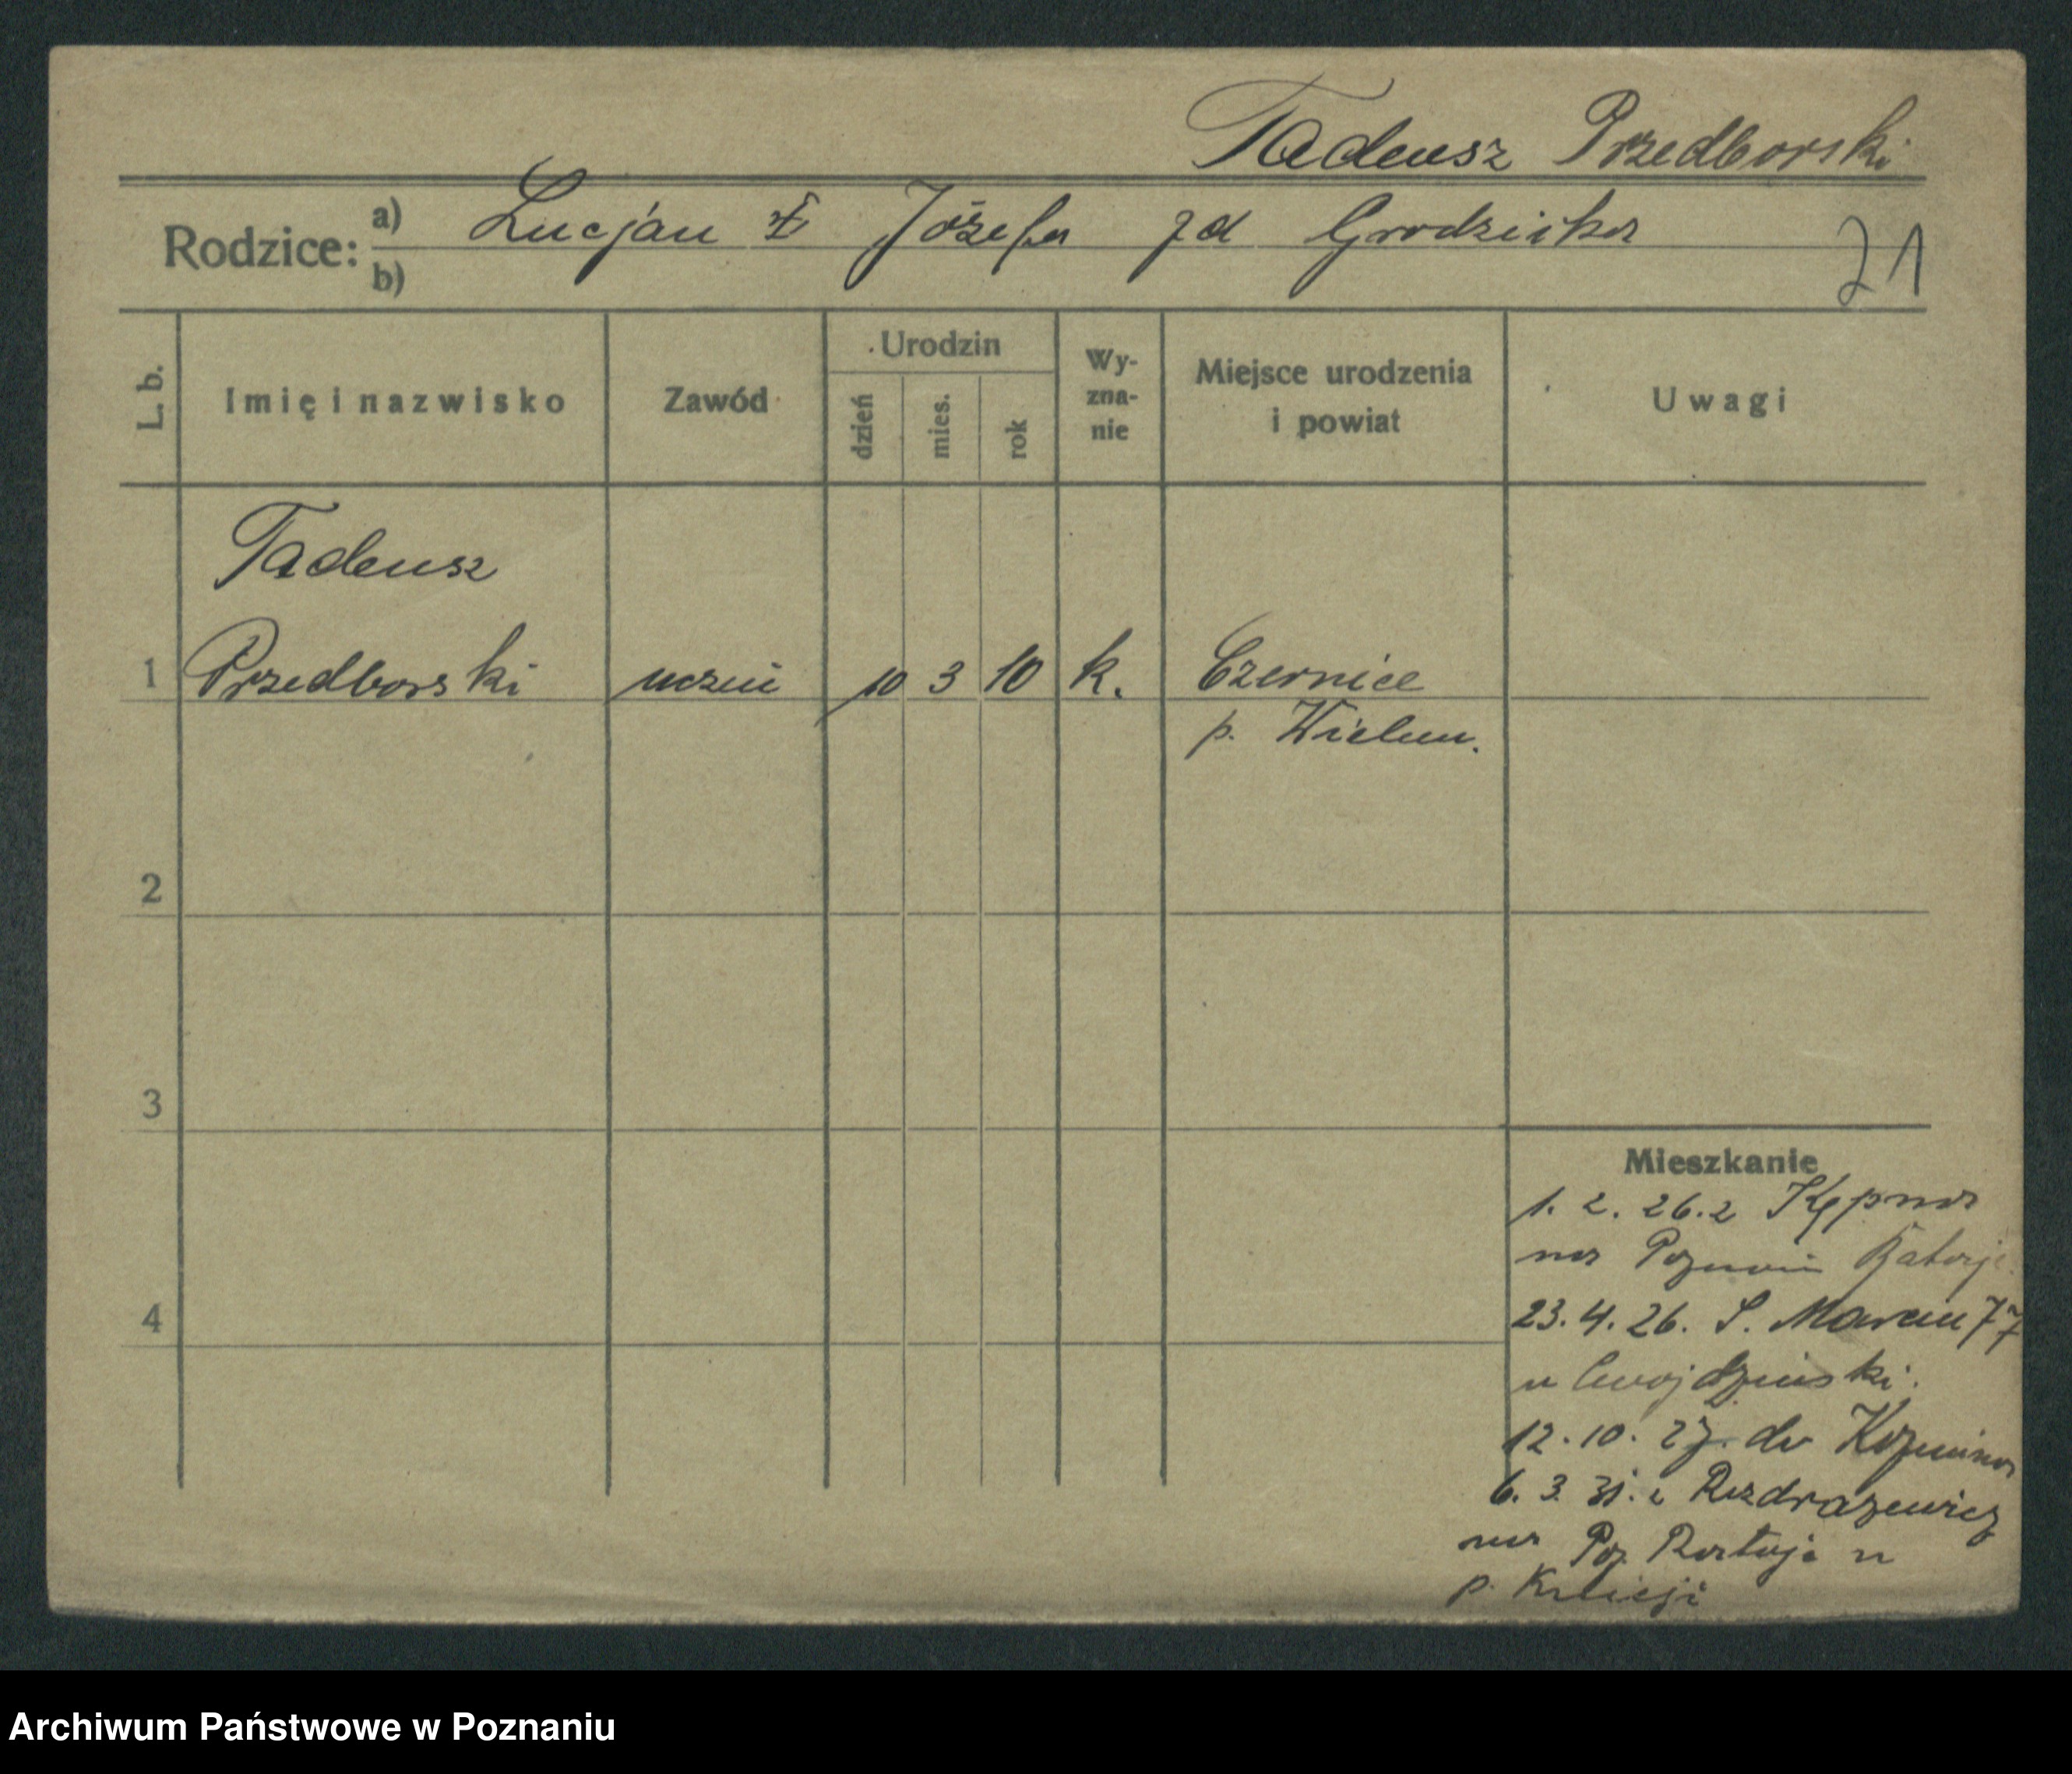 Tadeusz Przedborski
Rodzice: a) Lucjan Józefa zd Grodzicka
b)
21
L. b.
Imię i nazwisko
Zawód
Urodzin
dzień
mies.
rok
Wy-
zna-
nie
Miejsce urodzenia
i powiat
Uwagi
Tadeusz
1 Przedborski uczeń 10 3 10 k. Czernice
p. Wielun.
2
3
4
Mieszkanie
1. 2. 26. z Kępna
na Poznań
23. 4. 26. S. Marcin 77
u Cwojdzinski.
12. 10. 27. do Kozmina
6. 3. 31. z
na Poz. u
p.
Archiwum Państwowe w Poznaniu